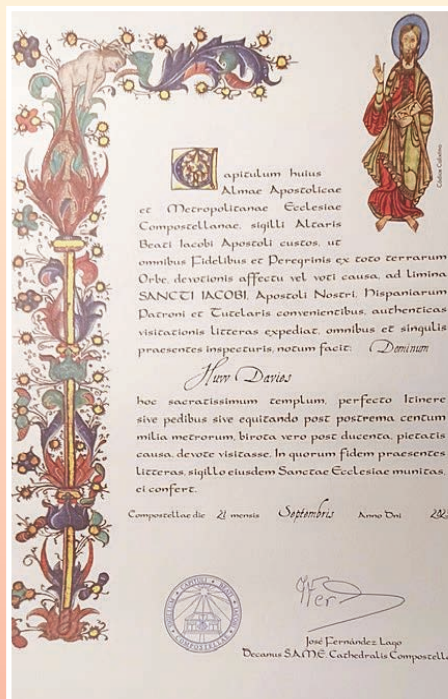 Capitulum huius
Almae Apostolicae
et Metropolitanae Ecclesiae
Compostellanae, sigilli Altaris
Beati Iacobi Apostoli custos, ut
omnibus Fidelibus et Peregrinis ex toto terrarum
Orbe, devotionis affectu vel voti causa, ad limina
SANCTI IACOBI, Apostoli Nostri, Hispaniarum
Patroni et Tutelaris convenientibus, authenticas
visitationis litteras expediat, omnibus et singulis
praesentes inspecturis, notum facit: Dominum
Huw Davies
hoc sacratissimum templum, perfecto Itinere
sive pedibus sive equitando post postrema centum
milia metrorum, birota vero post ducenta, pietatis
causa, devote visitasse. In quorum fidem praesentes
litteras, sigillo eiusdem Sanctae Ecclesiae munitas,
ei confert.
Compostellae die 21 mensis Septembris Anno Dni 202
José Fernández Lago
Decanus S.A.M.E. Cathedralis Compostella